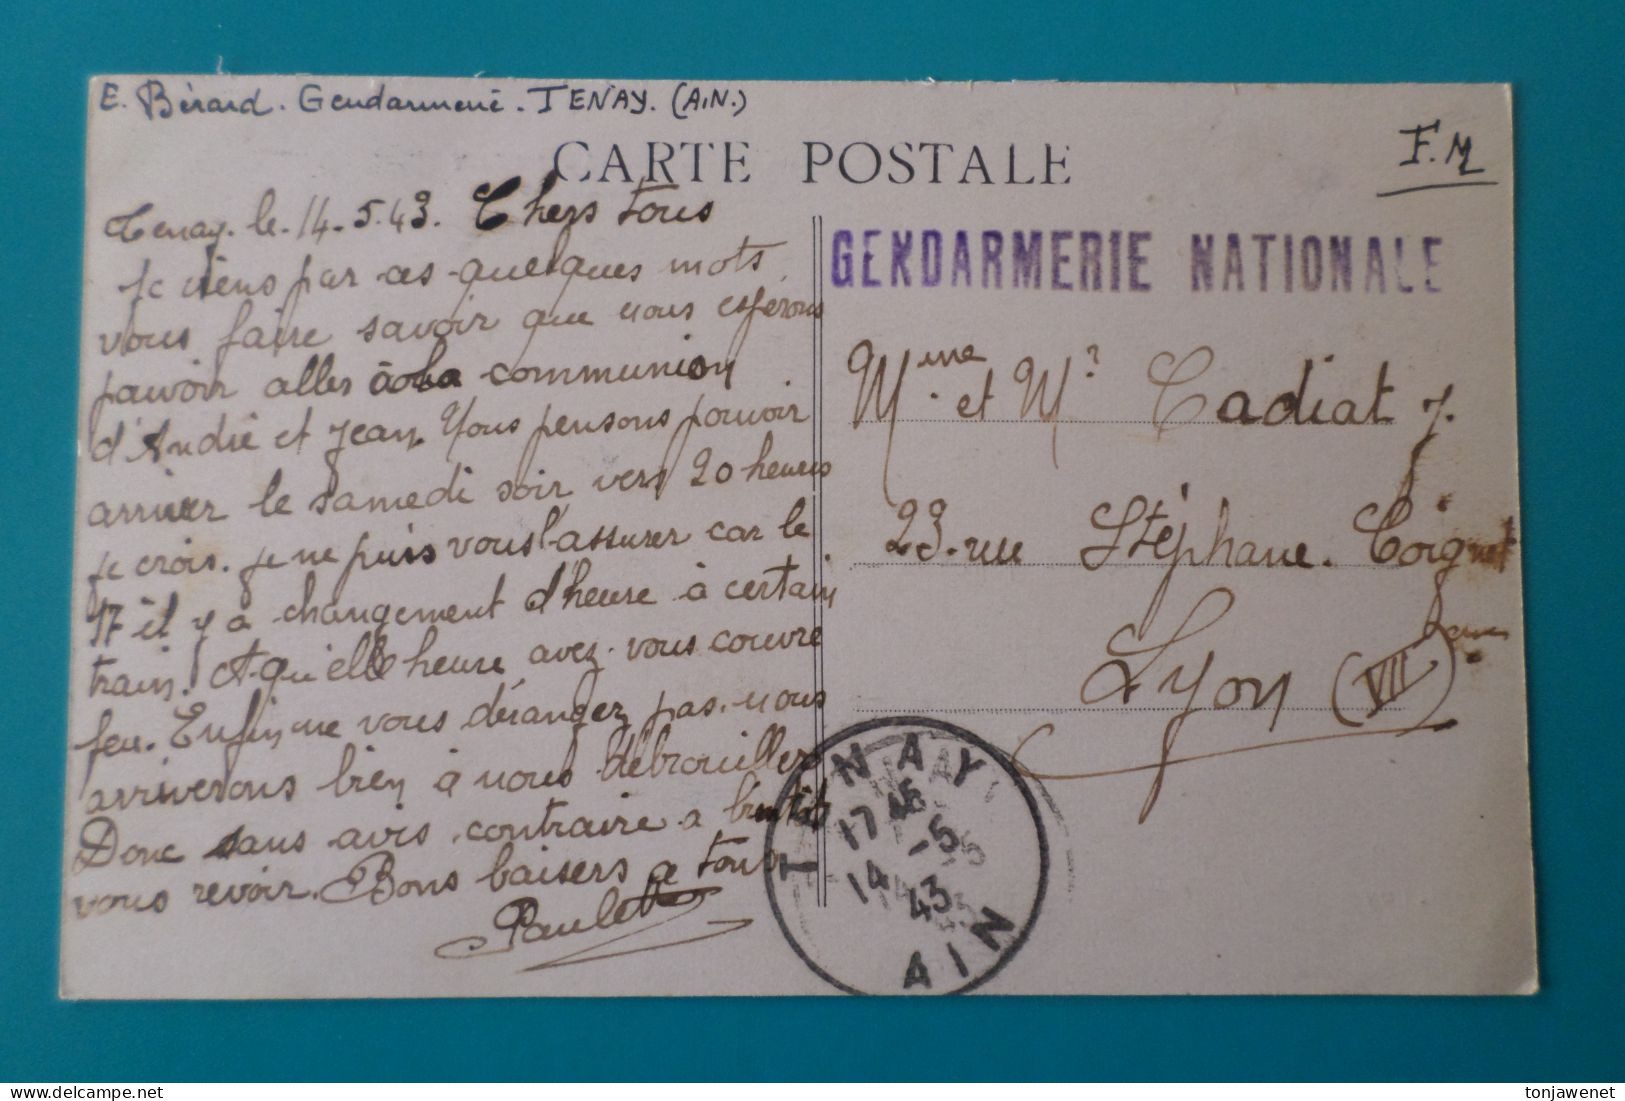 E. Bérard. Gendarmerie. TENAY. (AIN.)
CARTE POSTALE
F.M
Tenay. le. 14. 5. 43. Chers tous
Je viens par ces quelques mots
vous faire savoir que nous espérons
pouvoir aller à la communion
d'André et Jean. Nous pensons pouvoir
arriver le samedi soir vers 20 heures
je crois. je ne puis vous l'assurer car le
17 il y a changement d'heure à certain
train. A qu'elle heure avez-vous couvre
feu. Enfin ne vous dérangez pas. nous
arriverons bien à nous débrouiller
Donc sans avis contraire a bientôt
vous revoir. Bons baisers a tous
Paulette
GENDARMERIE NATIONALE
Mme et Mr Cadiat J.
23. rue Stéphane. Coignet
Lyon (VII)
TENAY
17 45
14 -5
43
AIN
tonjawenet